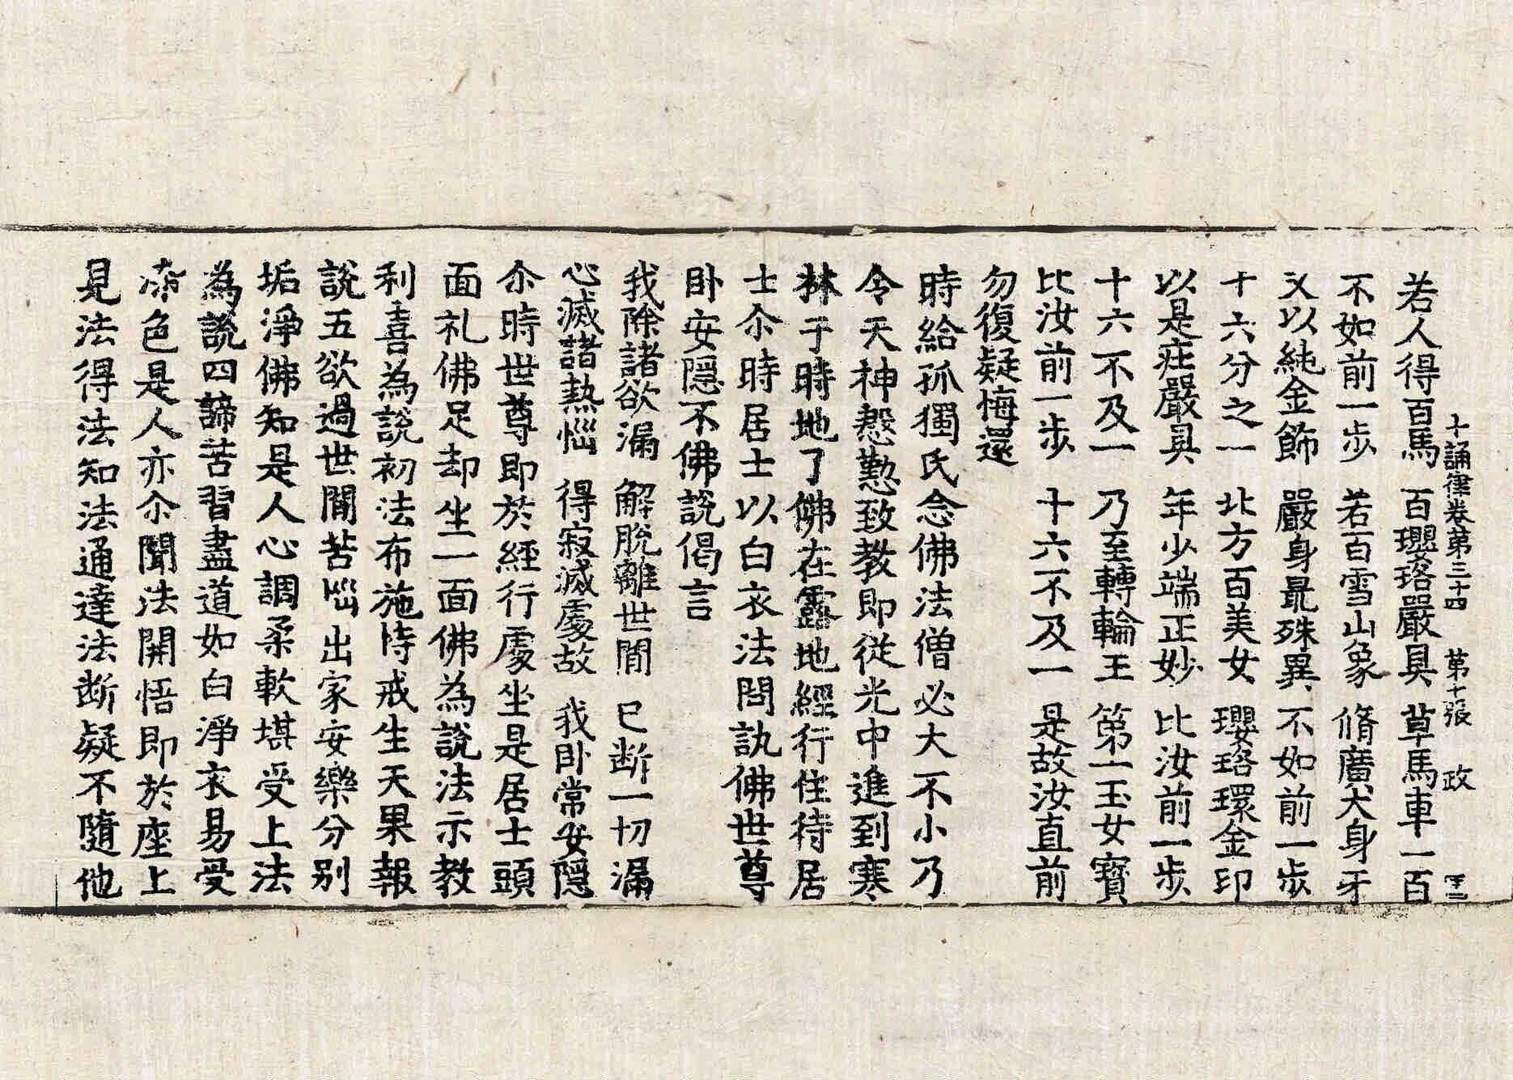 十誦律卷第三十四 第十張 政
若人得百馬 百瓔珞嚴具 草馬車一百
不如前一步 若百雪山象 脩廣大身牙
又以純金飾 嚴身最殊異 不如前一步
十六分之一 北方百美女 瓔珞環金印
以是庄嚴具 年少端正妙 比汝前一步
十六不及一 乃至轉輪王 第一玉女寶
比汝前一步 十六不及一 是故汝直前
勿復疑悔還
時給孤獨氏念佛法僧必大不小乃
令天神慇懃致教即従光中進到寒
林于時地了佛在露地經行住待居
士尒時居士以白衣法問訊佛世尊
卧安隱不佛說偈言
我除諸欲漏 解脫離世間 已断一切漏
心滅諸熱惱 得寂滅處故 我卧常安隱
尒時世尊即於經行處坐是居士頭
面礼佛足却坐一面佛為說法示教
利喜為說初法布施持戒生天果報
說五欲過世間苦惱出家安樂分別
垢淨佛知是人心調柔軟堪受上法
為說四諦苦習盡道如白淨衣易受
染色是人亦尒聞法開悟即於座上
見法得法知法通達法断疑不隨他